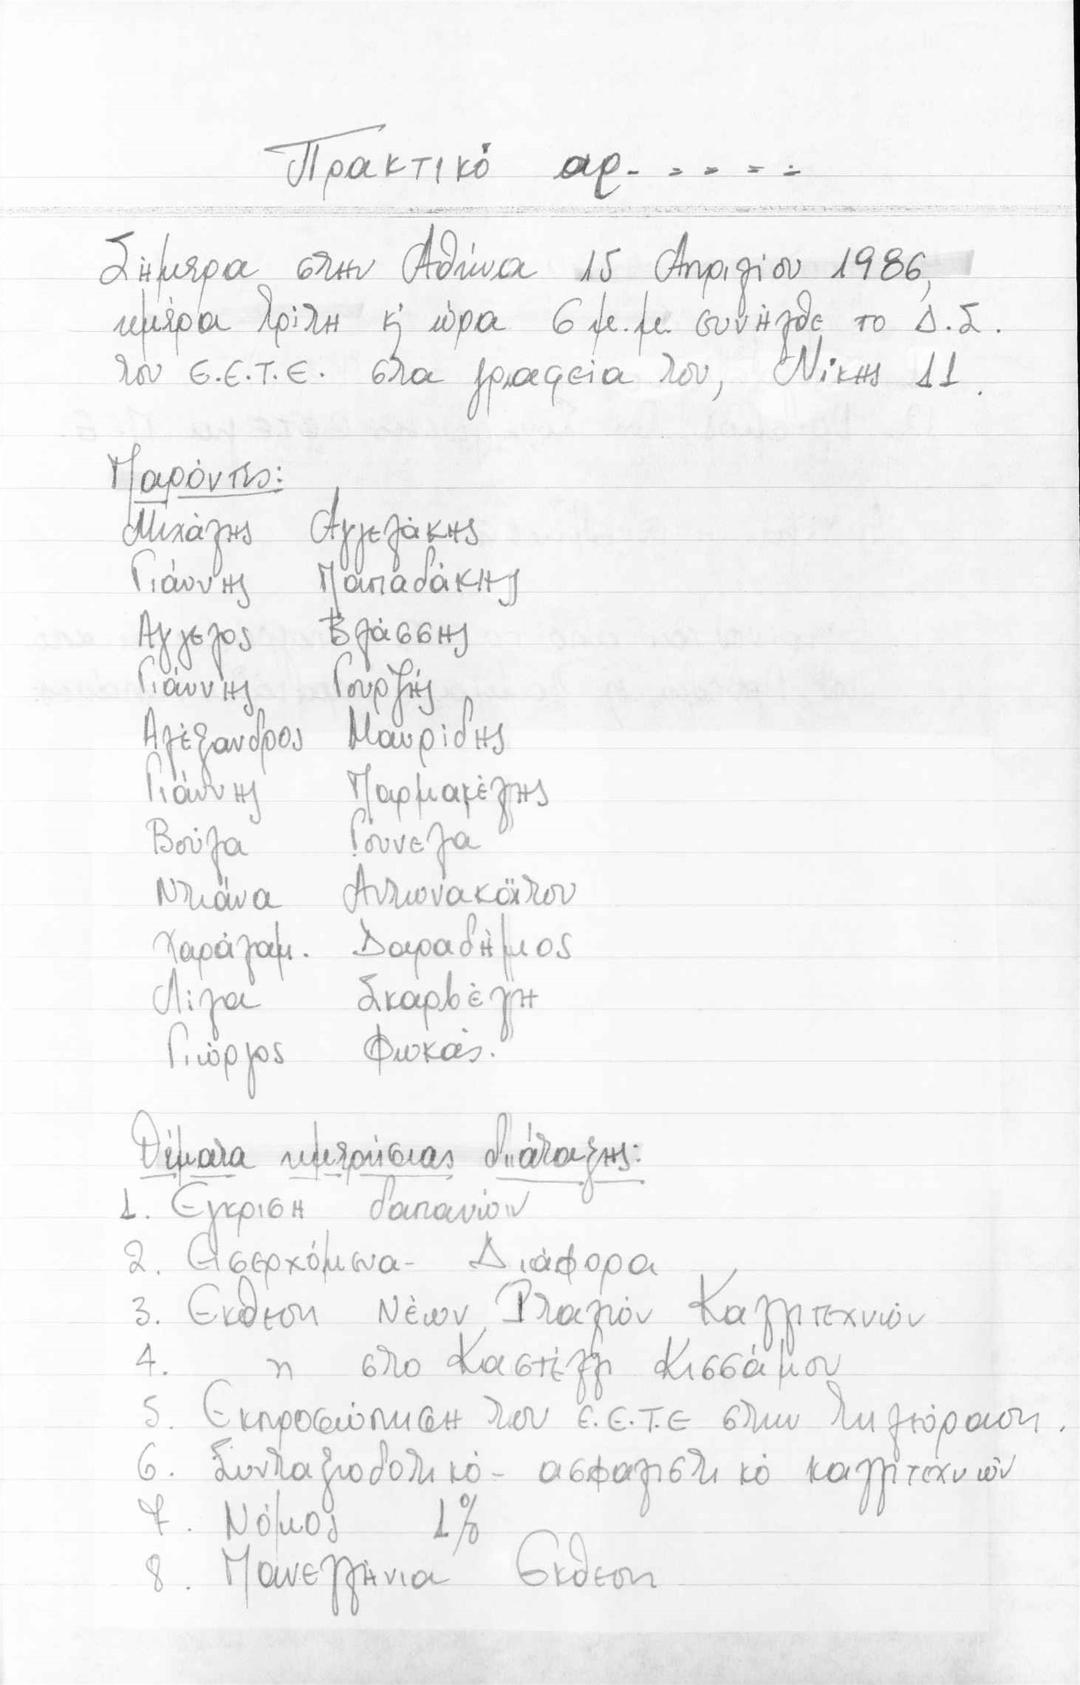 Πρακτικό αρ.......
Σήμερα στην Αθήνα 15 Απριλίου 1986,
ημέρα Τρίτη κ' ώρα 6 μ.μ. συνήλθε το Δ.Σ.
του Ε.Ε.Τ.Ε. στα γραφεία του, Νίκης 11.
Παρόντες:
Μιχάλης Αγγελάκης
Γιάννης Παπαδάκης
Αγγελος Βλάσσης
Γιάννης Γουρζής
Αλέξανδρος Μαυρίδης
Γιάννης Παρμακέλης
Βούλα Γουνελα
Ντιάνα Αντωνακάτου
Χαράλαμ. Δαραδήμος
Λίζα Σκαρβέλη
Γιώργος Φωκάς.
Θέματα ημερήσιας διάταξης:
1. Εγκριση δαπανών
2. Εισερχόμενα - Διάφορα
3. Εκθεση Νέων Ιταλών Καλλιτεχνών
4. " στο Καστέλλι Κισσάμου
5. Εκπροσώπηση του Ε.Ε.Τ.Ε στην τηλεόραση.
6. Συνταξιοδοτικό - ασφαλιστικό καλλιτεχνών
7. Νόμος 1%
8. Πανελλήνια Εκθεση